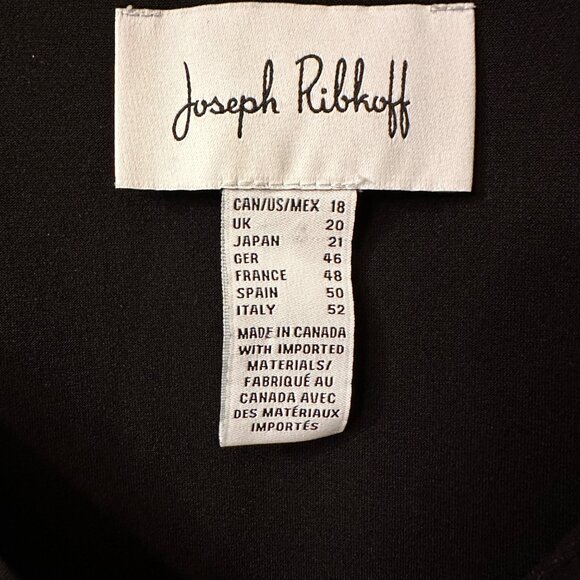 Joseph Ribkoff
CAN/US/MEX 18
UK 20
JAPAN 21
GER 46
FRANCE 48
SPAIN 50
ITALY 52
MADE IN CANADA
WITH IMPORTED
MATERIALS/
FABRIQUÉ AU
CANADA AVEC
DES MATÉRIAUX
IMPORTÉS